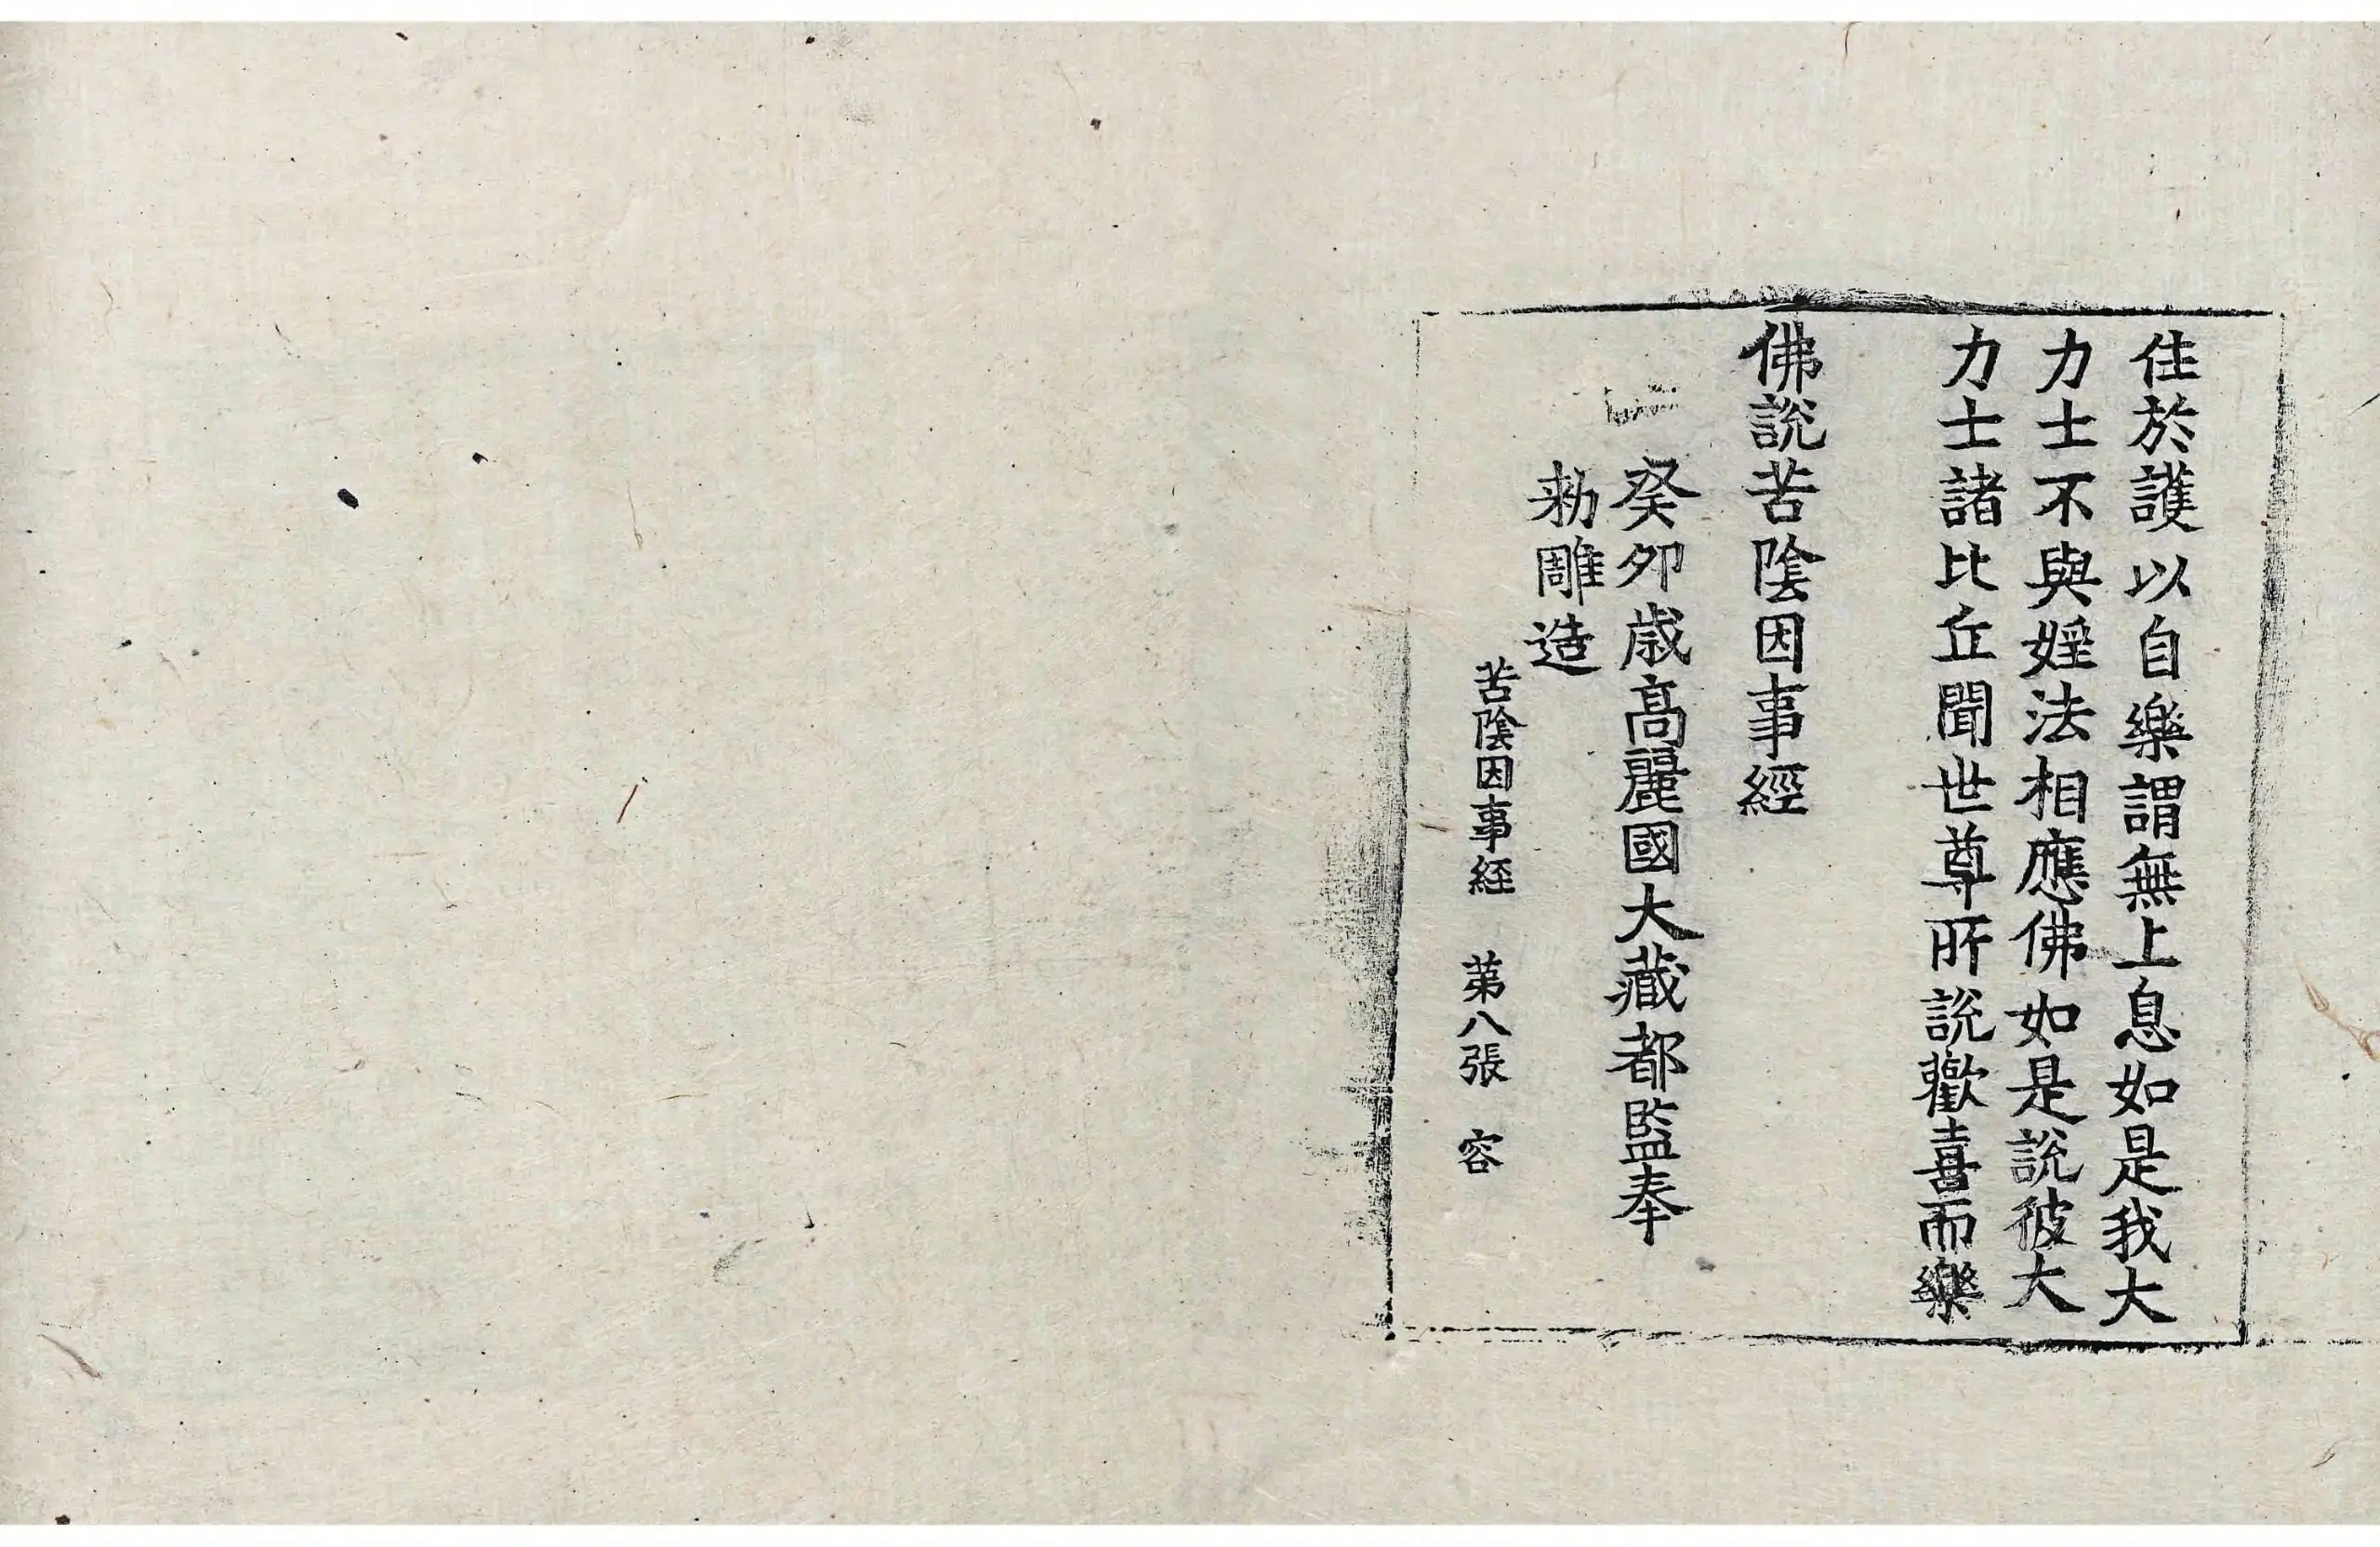 住於護以自樂謂無上息如是我大
力士不與婬法相應佛如是說彼大
力士諸比丘聞世尊所說歡喜而樂
佛說苦陰因事經
癸卯歲高麗國大藏都監奉
勑雕造
苦陰因事経 第八張 容